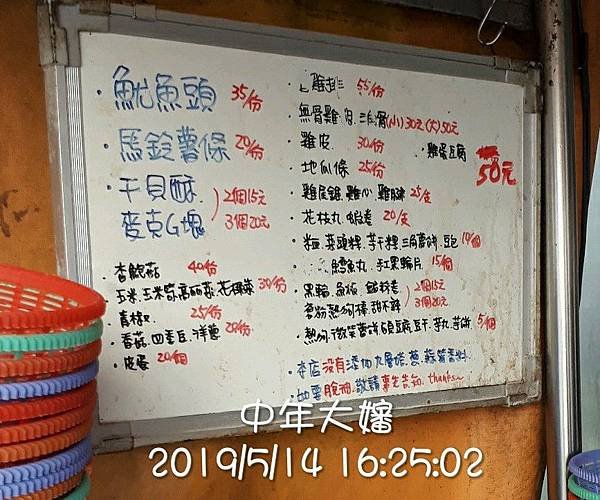 ·魷魚頭 35/份
·馬鈴薯條 20/份
·干貝酥 2個15元
麥克G塊 3個20元
·杏鮑菇 40/份
玉米、玉米筍、高麗菜、花椰菜 30/份
·青椒 25/份
·香菇、四季豆、洋蔥 20/份
·皮蛋 20/個
雞排 55/份
無骨雞 (小)30元 (大)50元
·雞皮 30/份
·雞蛋豆腐 50元
·地瓜條 25/份
·雞屁股、雞心、雞腱 25/支
·花枝丸、蝦捲 20/支
芋干粿、三角薯餅、豆包 10/個
鱈魚丸、紅黑輪片 15/個
·黑輪、魚板 2個15元
甜不辣 3個20元
·熱狗、微笑薯餅、百頁豆腐、豆干、芋丸、芋餅 5/個
·本店沒有添加九層塔、蔥、蒜等香料
如要脫油、敬請事先告知、thanks~
中年大嬸
2019/5/14 16:25:02